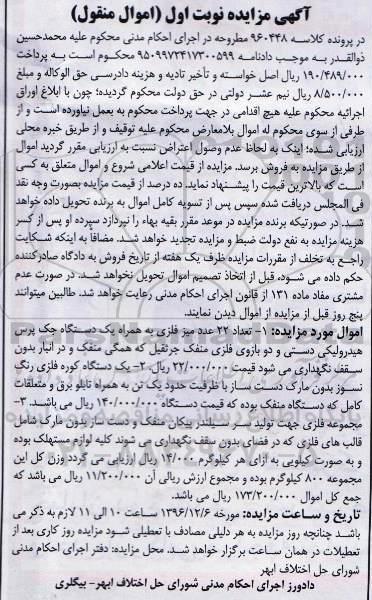 آگهی مزایده نوبت اول (اموال منقول)
در پرونده کلاسه ۹۶۰۴۴۸ مطروحه در اجرای احکام مدنی محکوم علیه محمدحسین
ذوالقدر به موجب دادنامه ۹۵۰۹۹۷۲۴۱۷۳۰۰۵۹۹ محکوم است به پرداخت
۱۹۰/۴۸۹/۰۰۰ ریال اصل خواسته و تأخیر تادیه و هزینه دادرسی حق الوکاله و مبلغ
۸/۵۰۰/۰۰۰ ریال نیم عشر دولتی در حق دولت محکوم گردیده؛ چون با ابلاغ اوراق
اجرائیه محکوم علیه هیچ اقدامی در جهت پرداخت محکوم به بعمل نیاورده است و از
طرفی از سوی محکوم له اموال بلامعارض محکوم علیه توقیف و از طریق خبره محلی
ارزیابی شده؛ اینک به لحاظ عدم وصول اعتراض نسبت به ارزیابی مقرر گردید اموال
از طریق مزایده به فروش برسد. مزایده از قیمت اعلامی شروع و اموال متعلق به کسی
است که بالاترین قیمت را پیشنهاد نماید. ده درصد از قیمت مزایده بصورت وجه نقد
فی المجلس دریافت شده سپس پس از تسویه کامل اموال به برنده تحویل داده خواهد
شد. در صورتیکه برنده مزایده در موعد مقرر بقیه بهاء را نپردازد سپرده او پس از کسر
هزینه مزایده به نفع دولت ضبط و مزایده تجدید خواهد شد. مضافاً به اینکه شکایت
راجع به تخلف از مقررات مزایده ظرف یک هفته از تاریخ فروش به دادگاه صادرکننده
حکم داده می شود، قبل از اتخاذ تصمیم اموال تحویل نخواهد شد. در صورت عدم
مشتری مفاد ماده ۱۳۱ از قانون اجرای احکام مدنی رعایت خواهد شد. طالبین میتوانند
پنج روز قبل از مزایده از اموال دیدن نمایند.
اموال مورد مزایده: ۱- تعداد ۲۲ عدد میز فلزی به همراه یک دستگاه جک پرس
هیدرولیکی دستی و دو بازوی فلزی منفک جرثقیل که همگی منفک و در انبار بدون
سقف نگهداری می شود قیمت ۲۲/۰۰۰/۰۰۰ ریال. ۲- یک دستگاه کوره فلزی رنگ
نسوز بدون مارک دست ساز با ظرفیت حدود یک تن به همراه تابلو برق و متعلقات
کامل که دستگاه منفک بوده که قیمت دستگاه ۱۴۰/۰۰۰/۰۰۰ ریال می باشد. ۳-
مجموعه فلزی جهت تولید سر سیلندر پیکان منفک و دست ساز بدون مارک شامل
قالب های فلزی که در فضای بدون سقف نگهداری می شوند کلیه لوازم مستهلک بوده
و به صورت کیلویی به ازای هر کیلوگرم ۱۴/۰۰۰ ریال ارزیابی می گردد وزن کل این
مجموعه ۸۰۰ کیلوگرم بوده و مجموع ارزش ریالی آن ۱۱/۲۰۰/۰۰۰ ریال می باشد که
جمع کل اموال ۱۷۳/۲۰۰/۰۰۰ ریال می باشد.
تاریخ و ساعت مزایده: مورخه ۱۳۹۶/۱۲/۶ ساعت ۱۰ الی ۱۱ لازم به ذکر می
باشد چنانچه روز مزایده به هر دلیلی مصادف با تعطیلی شود مزایده روز کاری بعد از
تعطیلات در همان ساعت برگزار خواهد شد. محل مزایده: دفتر اجرای احکام مدنی
شورای حل اختلاف ابهر
دادورز اجرای احکام مدنی شورای حل اختلاف ابهر- بیگلری